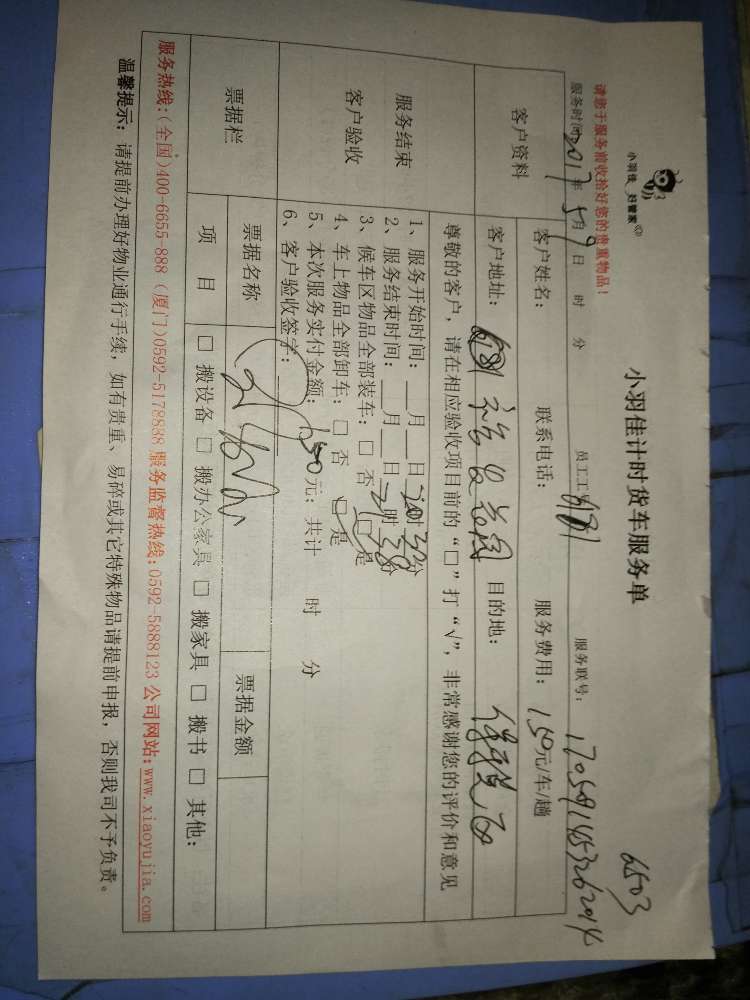 6503
小羽佳 好管家
小羽佳计时货车服务单
请您于服务前收拾好您的贵重物品！
服务时间：2017年5月9日 时 分 员工工号： 服务联号：
客户资料 客户姓名： 联系电话： 服务费用：150元/车/趟
客户地址： 目的地：
尊敬的客户，请在相应验收项目前的“□”打“√”，非常感谢您的评价和意见
服务结束
客户验收
1、服务开始时间：__月__日20时30分
2、服务结束时间：__月__日21时30分
3、候车区物品全部装车：□ 否 □ 是
4、车上物品全部卸车：□ 否 □ 是
5、本次服务实付金额：150元；共计 时 分
6、客户验收签字：
票据栏 票据名称 票据金额
项 目 □ 搬设备 □ 搬办公家具 □ 搬家具 □ 搬书 □ 其他：
服务热线：（全国）400-6655-888（厦门）0592-5178888 服务监督热线：0592-5888123 公司网站：www.xiaoyujia.com
温馨提示：请提前办理好物业通行手续，如有贵重、易碎或其它特殊物品请提前申报，否则我司不予负责。